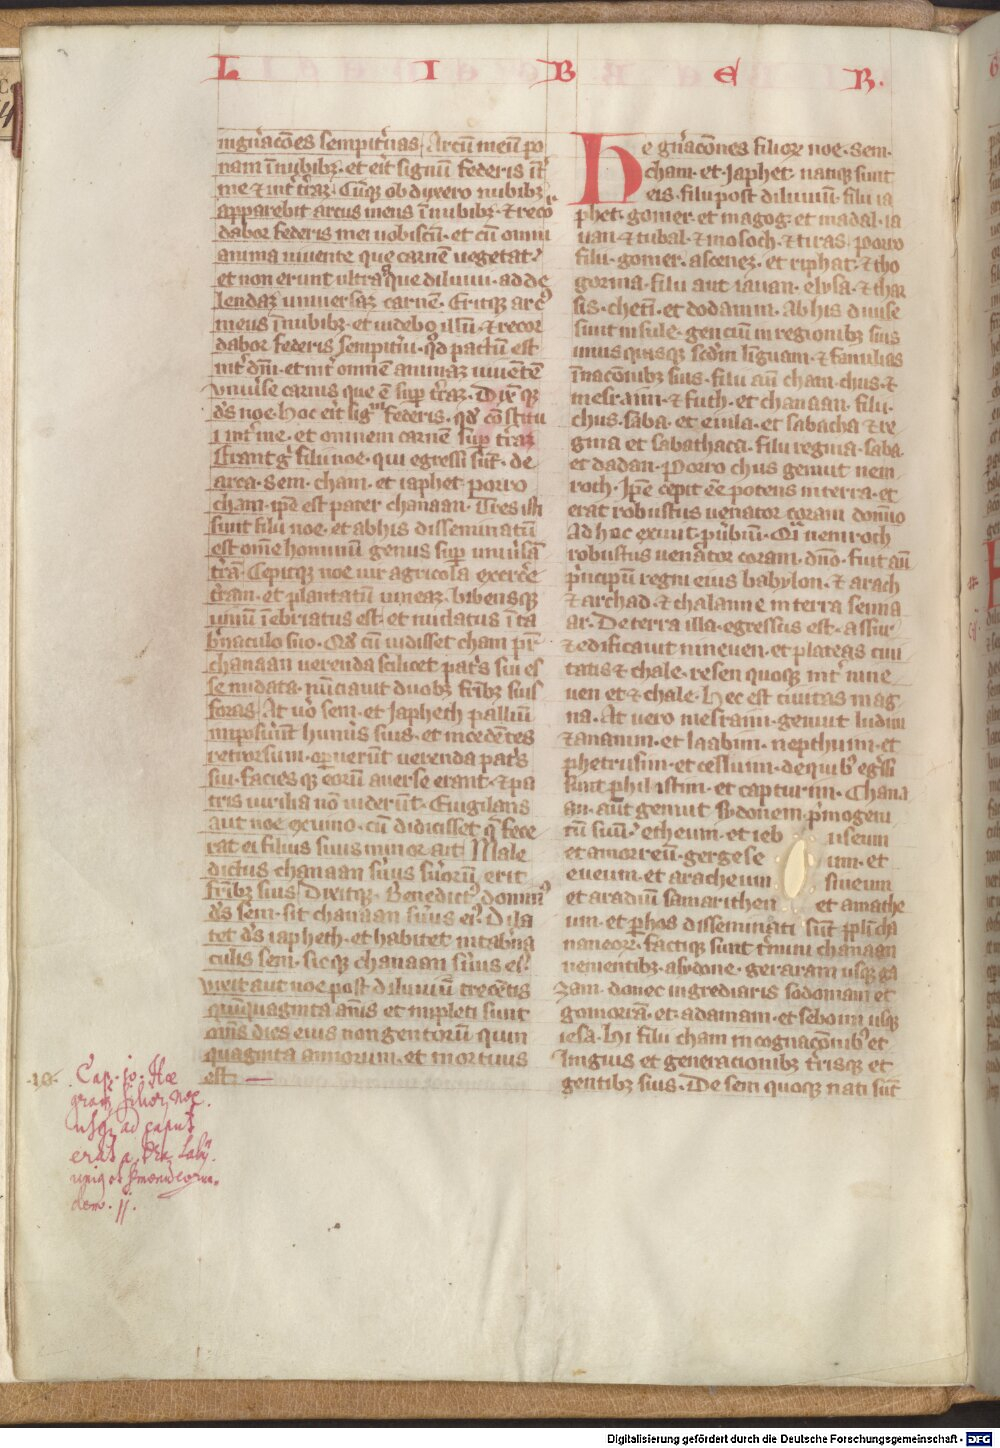 L I B E R.
ingn̄acōes sempit̄nas. Arcū meū po
nam ī nubibꝫ. et erit signū federis īt̄
me & int̄ t̄raꝫ. Cūqꝫ ob duxero nubibꝫ
apparebit arcus meus ī nubibꝫ. & recor
dabor federis mei uobiscū. et cū omni
anima uiuente que carnē uegetat.
et non erunt ultra aque diluuii. ad de
lendaꝫ uniuersaꝫ carnē. Eritqꝫ arcꝰ
meus ī nubibꝫ. et uidebo illū. & recor
dabor federis sempit̄ni. qd̄ pactū est
int̄ dm̄. et int̄ omnem animaꝫ uiuētē
vniūse carnis que ē sup t̄raꝫ. Dixᵗqꝫ
ds̄ noe. hoc erit signū federis. qd̄ cōstitu
i int̄ me. et omnem carnē sup t̄raꝫ
Erant gͥ filii noe. qui egressi sūt. de
arca. Sem. cham. et iaphet. porro
cham. ip̄e est pater chanaan. Tres isti
sunt filii noe. et ab his disseminatū
est om̄e hominū genus sup uniūsā
t̄rā. Cepitqꝫ noe uir agricola exerc̄e
t̄ram. et plantatū uineaꝫ. bibensqꝫ
uinū īebriatus est. et nudatus ī ta
b̄naculo suo. Qd̄ cū uidisset cham pr̄
chanaan uerenda scilicet pat̄s sui es
se nudata. nūciauit duobꝫ fr̄ibꝫ suis
foras. At uō sem. et Japheth palliū
imposūnt humīs suis. et incedētes
retrorsum. opuerūt uerenda pat̄s
sui. faciesqꝫ eorū auerse erant. & pa
tris uirilia nō uiderūt. Euigilans
aut noe ex uino. cū didicisset q̄ fece
rat ei filius suus minor ait. Male
dictus chanaan s̄uus s̄uorū erit
fr̄ibꝫ suis. Dixitqꝫ. Benedictꝰ dominꝰ
ds̄ sem. sit chanaan s̄uus eiꝰ. Dila
tet ds̄ iapheth. et habitet in tab̄na
culis sem. sicqꝫ chanaan s̄uus eiꝰ.
vixit aut noe post diluuiū trecētis
quīquaginta an̄is et impleti sunt
om̄s dies eius nongentorū quin
quaginta annorum. et mortuus
est.
.10. Cap. 10. Hæ
filior. noe.
usqꝫ ad caput
He gn̄acōnes filioꝝ noe. Sem.
cham. et. Japhet. natiqꝫ sunt
eis. filii post diluuiū. filii ia
phet. gomer. et magog. et madai. ia
uan. & tubal. & mosoch. & tiras. porro
filii. gomer. ascenez. et riphat. & tho
gorma. filii aut iauan. elysa. & thar
sis. chetī. et dodanim. Ab his diuise
sunt insule. genciū in regionibꝫ suis
unusquisqꝫ sedm linguam. & familias
ī nacōnibꝫ suis. filii aū cham. chus. &
mesraim. & futh. et chanaan. filii.
chus. saba. et euila. et sabatha & re
gma et sabathaca. filii regma. saba.
et dadan. Porro chus genuit nem
roth. Ip̄e cepit eē potens in terra. et
erat robustus uenator coram domīo
Ad hoc exiuit. pūbiū. Qi nemroth
robustus uenātor coram. dn̄o. fuit aū
p̄ncipiū regni eius babylon. & arach
& archad. & chalanne in terra senna
ar. De terra illa. egressus est. assur
& edificauit nineuen. et plateas ciui
tatis & chale. resen quoqꝫ int̄ nine
uen et & chale. hec est ciuitas mag
na. At uero mesraim. genuit ludim
& ananim. et laabim. nepthuim. et
phetrusim. et cesluim. de quibꝰ eḡssi
sunt philistiim. et capturim. Chana
an. aūt genuit sydonem. p̄mogeni
tū suū. etheum. et ieb useum
et amorreū. gergese um. et
eueum. et aracheum sineum
et aradiū samarithen et amathe
um. et p hos disseminati sūt ppl̄i cha
naneoꝝ. factiqꝫ sunt t̄mini chanaan
uenientibꝫ. a sydone. geraram usqꝫ ga
zam. donec ingrediaris sodomam et
gomorā. et adamam. et seboim usqꝫ
iesa. hi filii cham in cognacōnibꝰ et
linguis et generacionibꝫ t̄risqꝫ et
gentibꝫ suis. De sem quoqꝫ nati sūt
Digitalisierung gefördert durch die Deutsche Forschungsgemeinschaft - DFG